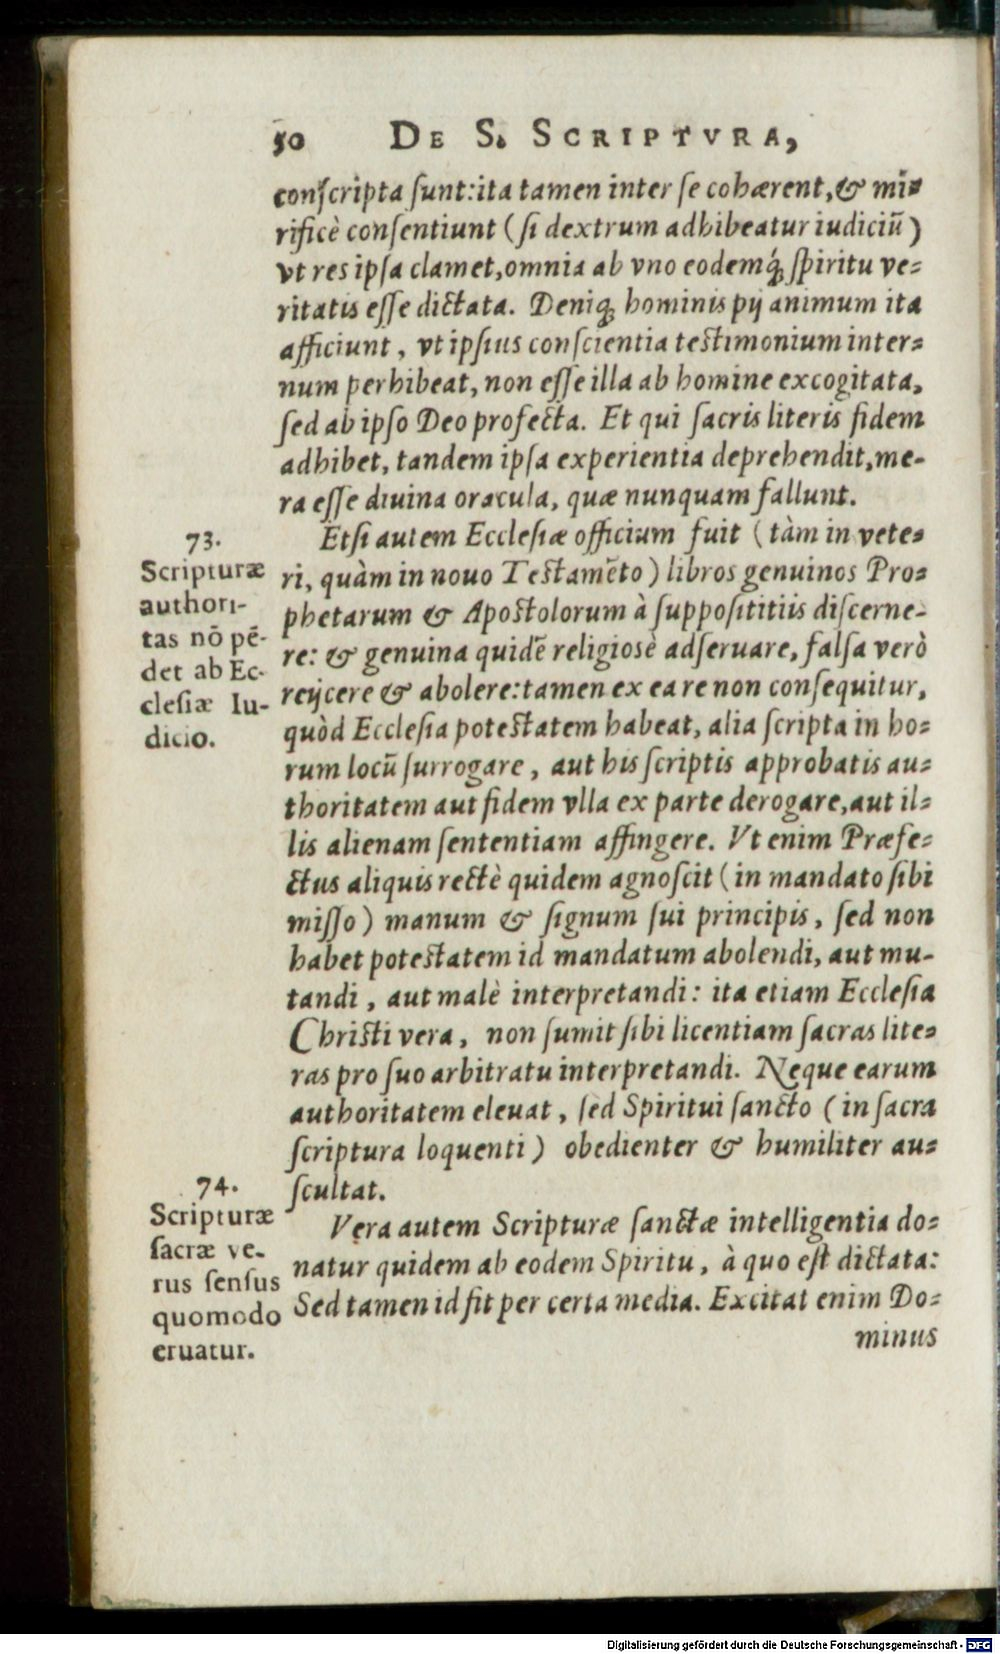 50 DE S. SCRIPTVRA,
conſcripta ſunt: ita tamen inter ſe cohærent, & mi-
rificè conſentiunt (ſi dextrum adhibeatur iudiciũ)
vt res ipſa clamet, omnia ab vno eodemq́; ſpiritu ve-
ritatis eſſe dictata. Deniq; hominis pij animum ita
afficiunt, vt ipſius conſcientia testimonium inter-
num perhibeat, non eſſe illa ab homine excogitata,
ſed ab ipſo Deo profecta. Et qui ſacris literis fidem
adhibet, tandem ipſa experientia deprehendit, me-
ra eſſe diuina oracula, quæ nunquam fallunt.
73.
Scripturæ
authori-
tas nõ pẽ-
det ab Ec-
cleſiæ Iu-
dicio.
Etſi autem Eccleſiæ officium fuit (tàm in vete-
ri, quàm in nouo Testamẽto) libros genuinos Pro-
phetarum & Apostolorum à ſuppoſititiis diſcerne-
re: & genuina quidẽ religiosè adſeruare, falſa verò
reijcere & abolere: tamen ex ea re non conſequitur,
quòd Eccleſia potestatem habeat, alia ſcripta in ho-
rum locũ ſurrogare, aut his ſcriptis approbatis au-
thoritatem aut fidem vlla ex parte derogare, aut il-
lis alienam ſententiam affingere. Vt enim Præfe-
ctus aliquis rectè quidem agnoſcit (in mandato ſibi
miſſo) manum & ſignum ſui principis, ſed non
habet potestatem id mandatum abolendi, aut mu-
tandi, aut malè interpretandi: ita etiam Eccleſia
Christi vera, non ſumit ſibi licentiam ſacras lite-
ras pro ſuo arbitratu interpretandi. Neque earum
authoritatem eleuat, ſed Spiritui ſancto (in ſacra
ſcriptura loquenti) obedienter & humiliter au-
ſcultat.
74.
Scripturæ
ſacræ ve-
rus ſenſus
quomodo
eruatur.
Vera autem Scripturæ ſanctæ intelligentia do-
natur quidem ab eodem Spiritu, à quo eſt dictata:
Sed tamen id fit per certa media. Excitat enim Do-
minus
Digitalisierung gefördert durch die Deutsche Forschungsgemeinschaft - DFG